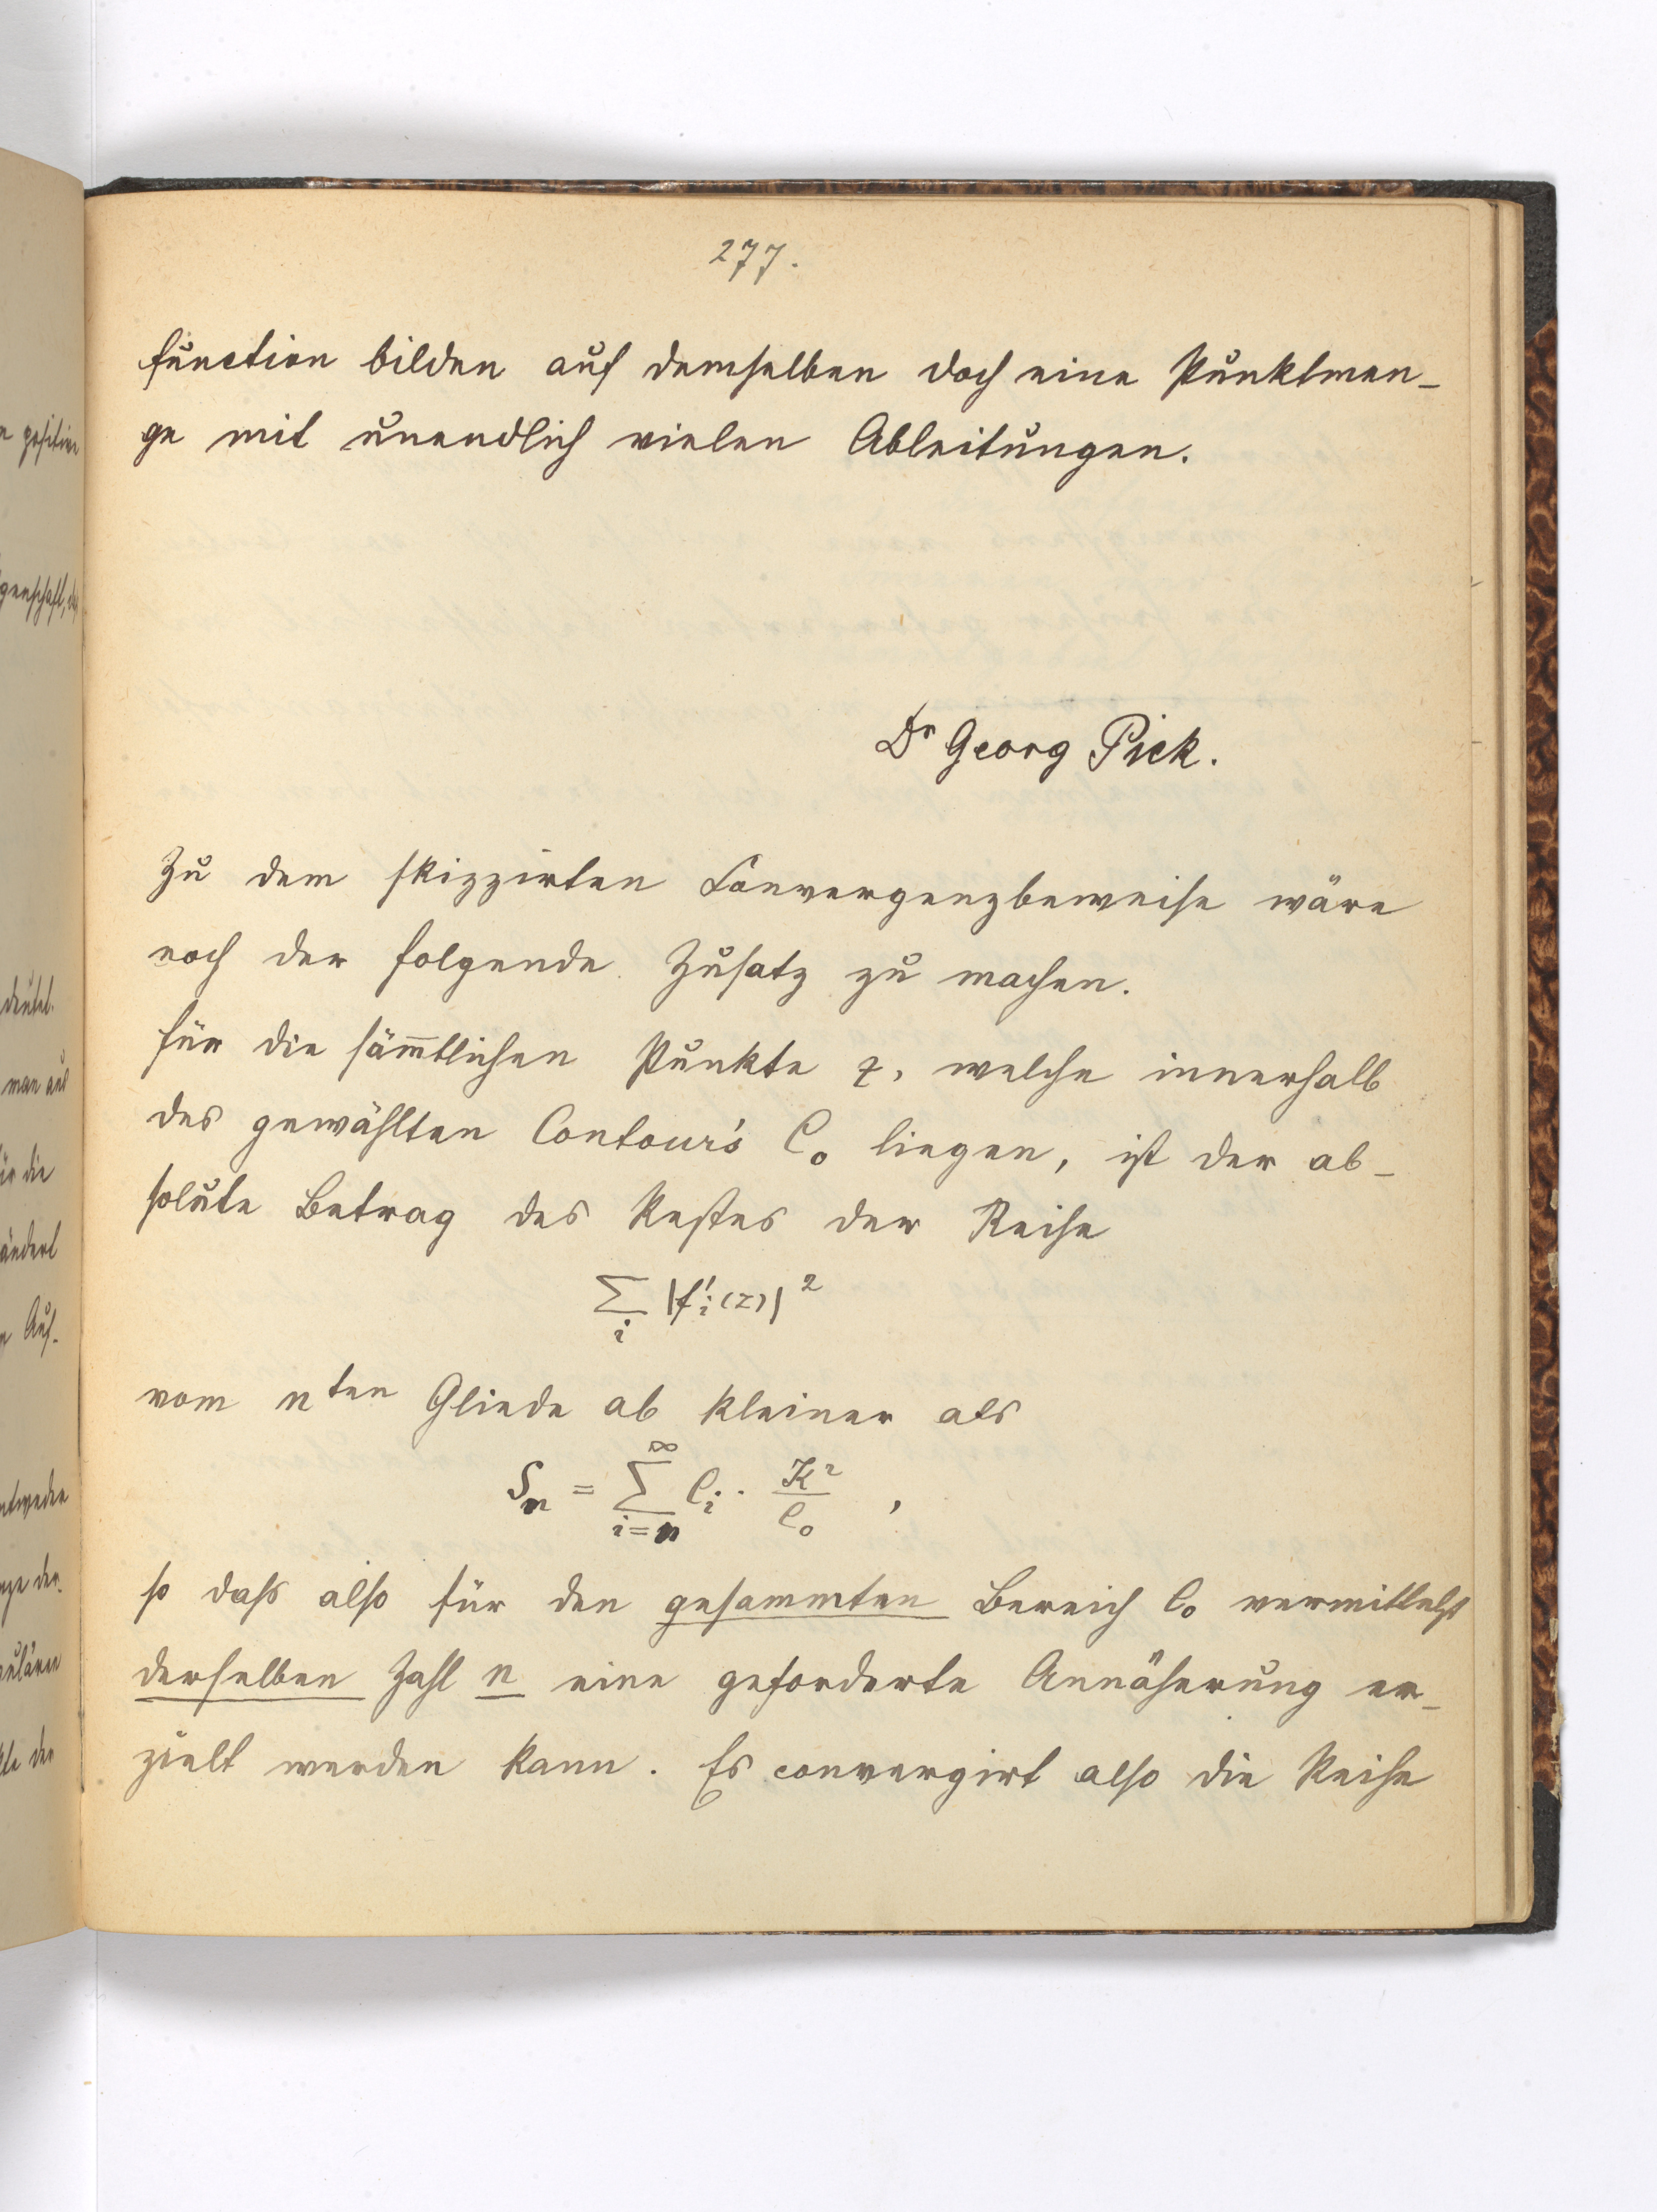 277.
function bilden auf demselben doch eine Punktmen-
ge mit unendlich vielen Ableitungen.
Dr Georg Pick.
Zu dem skizzirten Convergenzbeweise wäre
noch der folgende Zusatz zu machen.
Für die sämmtlichen Punkte z, welche innerhalb
des gewählten Contour's C₀ liegen, ist der ab-
solute Betrag des Restes der Reihe
∑ᵢ |f'ᵢ(z)|²
vom nten Gliede ab kleiner als
Sₙ = ∑_{i=n}^{∞} Cᵢ · K²/C₀ ,
so dass also für den gesammten Bereich C₀ vermittelst
derselben Zahl n eine geforderte Annäherung er-
zielt werden kann. Es convergirt also die Reihe